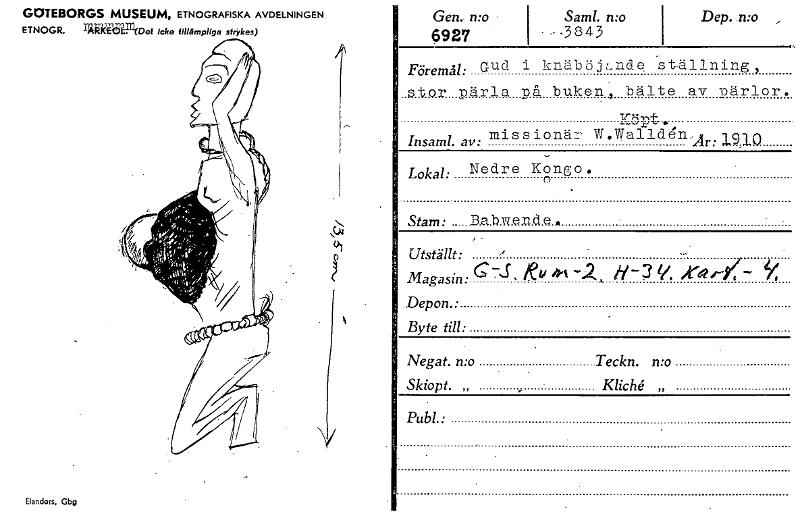 GÖTEBORGS MUSEUM, ETNOGRAFISKA AVDELNINGEN
ETNOGR. ARKEOL. (Det icke tillämpliga strykes)
13,5 cm
Elanders, Gbg
Gen. n:o Saml. n:o Dep. n:o
6927 3843
Föremål: Gud i knäböjande ställning,
stor pärla på buken, bälte av pärlor.
Köpt.
Insaml. av: missionär W.Walldén År: 1910
Lokal: Nedre Kongo.
Stam: Babwende.
Utställt:
Magasin: G-S. Rum-2. H-34. Kart.- 4.
Depon.:
Byte till:
Negat. n:o Teckn. n:o
Skiopt. „ Kliché „
Publ.: